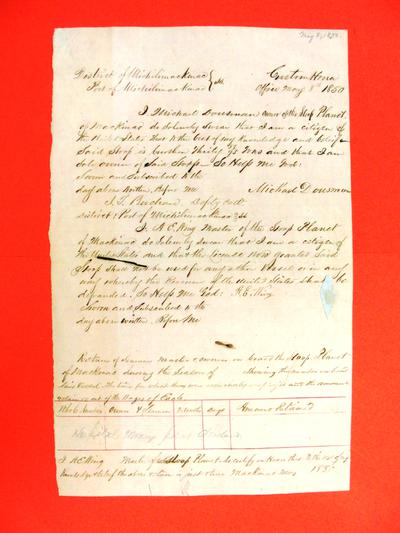 May 8, 1850
District of Michilimackinac } ss Custom House
Port of Michilimackinac Office May 8th 1850
I Michael Dousman owner of the Sloop Planet
of Mackinac do Solemnly Swear that I am a citizen of
the United States that to the best of my Knowledge and belief
Said Sloop is Tons and that I am
Sole owner of Said Sloop – So Help Me God:
Sworn and Subscribed to the
day above written, Before Me Michael Dousman
Depty Coll
district & Port of Michilimackinac ss
I, R E King Master of the Sloop Planet
of Mackinac do Solemnly Swear that I am a citizen of
the United States and that the license Now granted Said
Sloop Shall not be used for any other Vessel or in any
way whereby the Revenue of the United States shall be
defrauded. So Help Me God: R. E. King
Sworn and Subscribed to the
day above written Before Me
Return of Seamen Master & owners on board the Sloop Planet
of Mackinac during the Season of Showing the number on board
Said Vessel. The time for which they were and the amount
retained out of the Wages of Each
No of Master Owner & Seamen Months Days Amount Retained
I R E King Master of Sloop Planet do certify on Honor that to the best of my
Knowledge & belief the above return is just & true Mackinac 1850